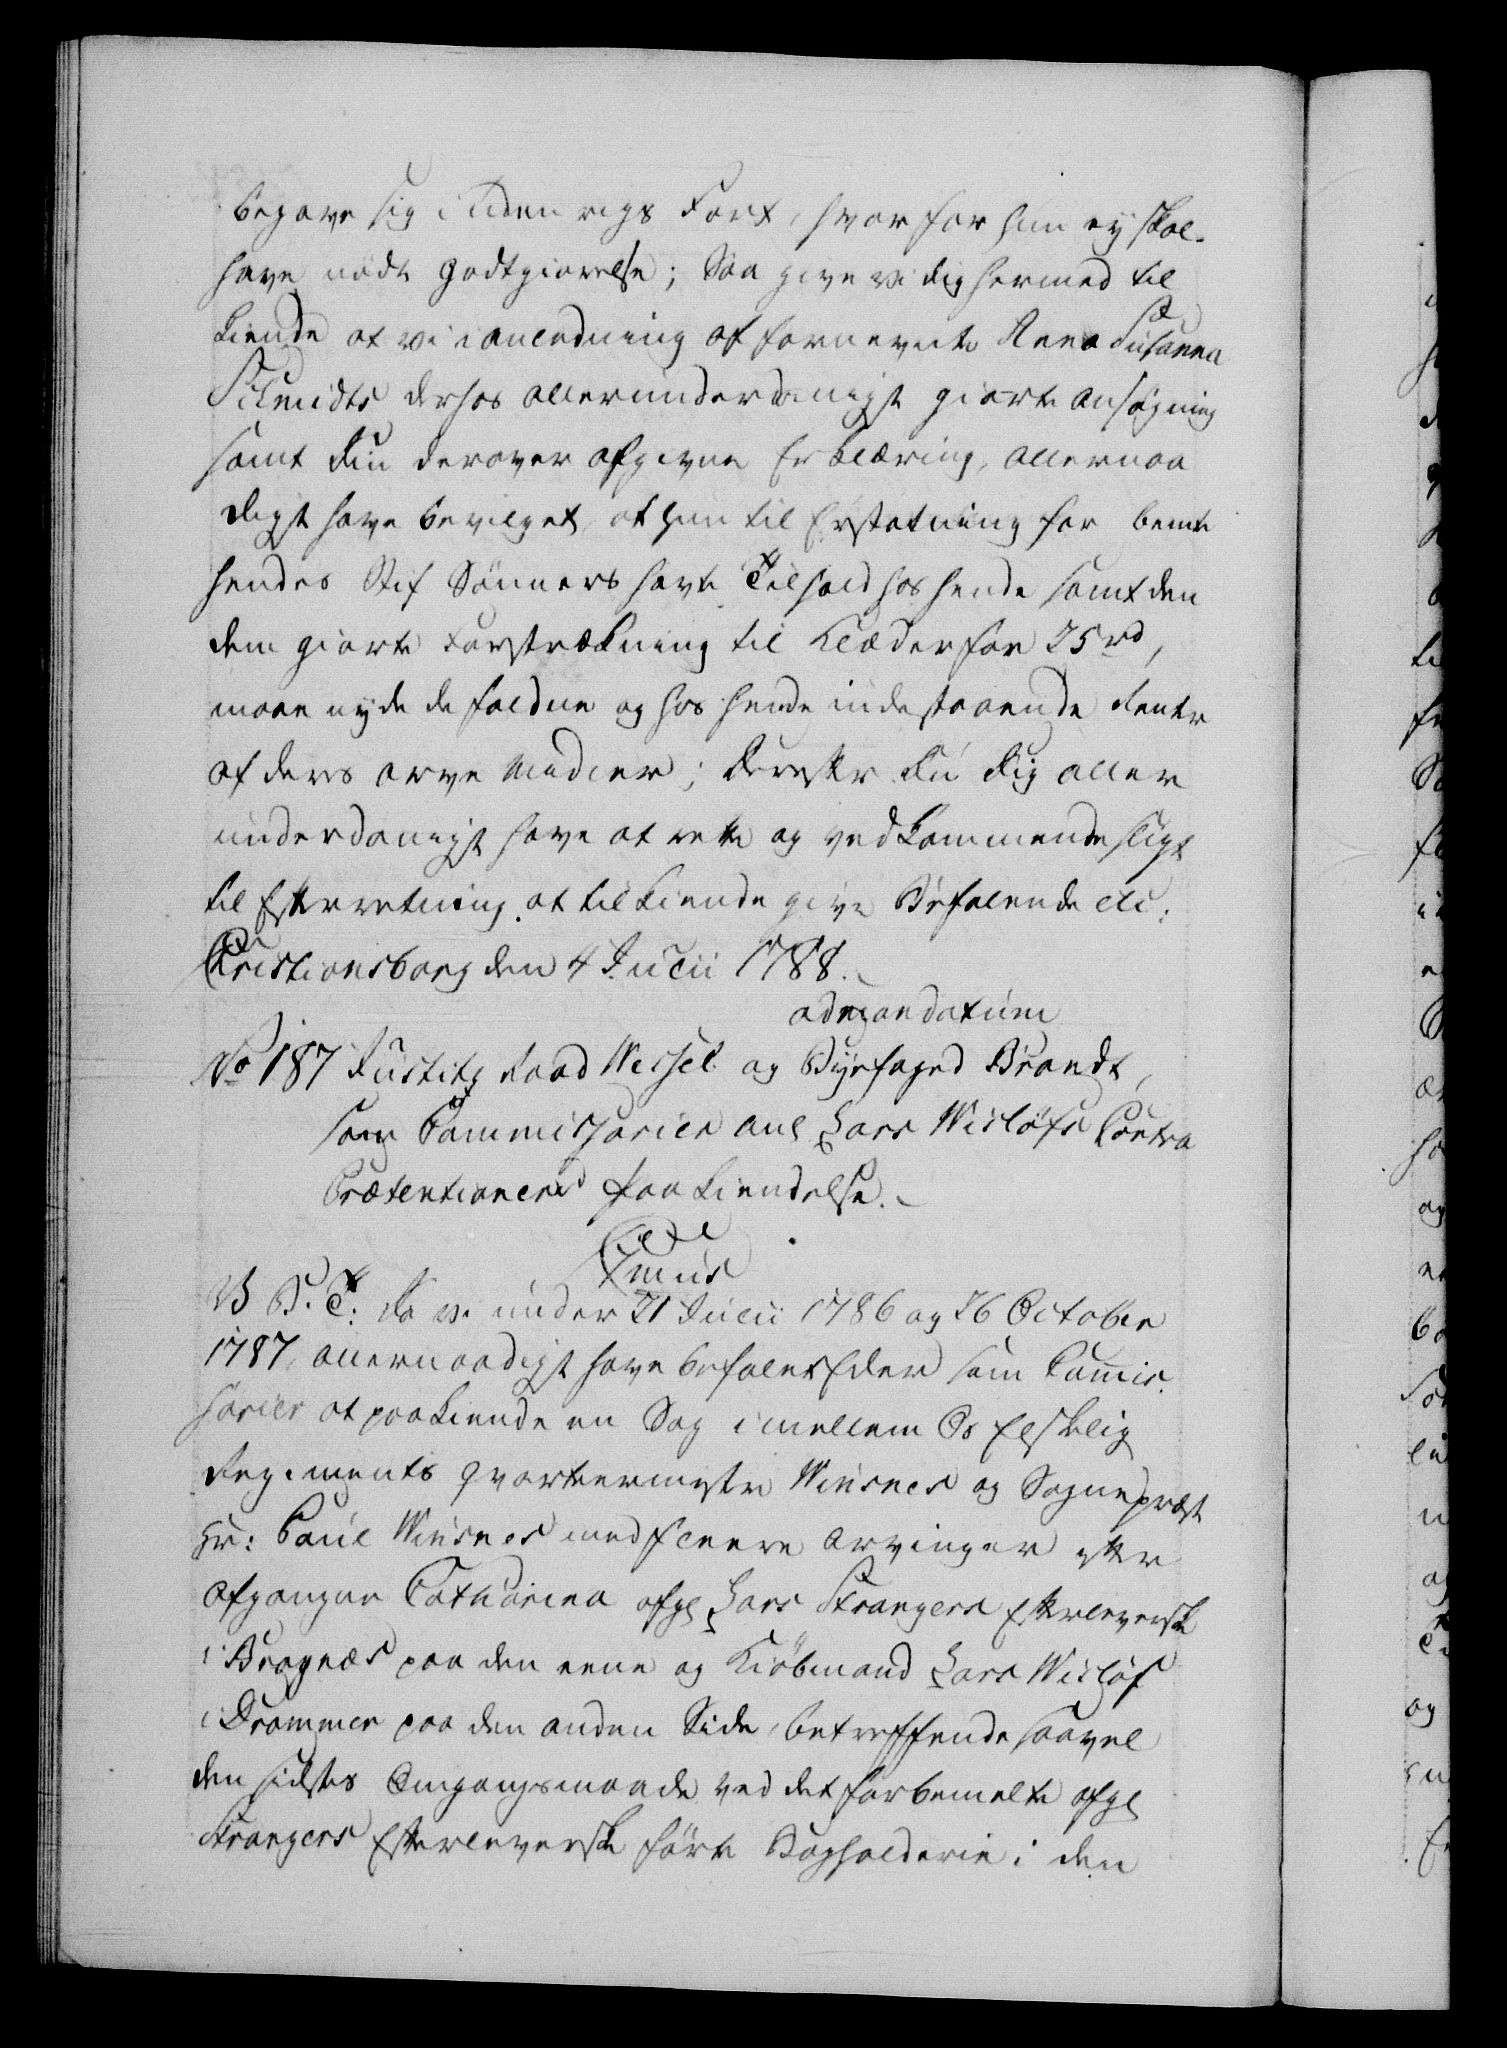 begave sig i Udenrigs Fart, hvorfor hun ej skal
have nødt godtgiørelse; Saa give vi dig hermed til
kiende at vi i anledning af fornevnte Anna Susanna
Schmidts derhos allerunderdanigst giorte ansøgning
samt din derover afgivne Erklæring, allernaa
digst have bevilget, at hun til Erstatning for bemte
hendes Stif Sønners havte Tilhold hos hende samt den
dem giorte Forstrækning til Klæder for 25 rd,
maae nyde de faldne og hos hende indestaaende Renter
af deres arve Midler; Derefter Du dig aller
underdanigst have at rette og vedkommende sligt
til Efterretning at tilkiende give Befalende etc:
Christiansborg den 4 Julii 1788.
ad mandatum
No 187 Justitz Raad Wessel og Byefoged Brandt,
som Commissarier anl Lars Wisløfs Contra
Prætentioners paakiendelse.
C 7mus
V. S. T: Da vi under 21 Julii 1786 og 26 October
1787, allernaadigst have befalet Eder som Commis
sarier at paakiende en Sag imellem Os Elskelig
Regiments qvarteermester Winsnes og Sognepræst
Hr: Paul Winsnes med fleere Arvinger efter
afgangne Catharina afgl Lars Strangers Efterleverske
i Bragnæs paa den eene og Kiøbmand Lars Wisløf
i Drammen paa den anden Side, betreffende saavel
den sidstes Omgangsmaade ved det for bemelte afgl
Strangers Efterleverske førte Bogholderie i den